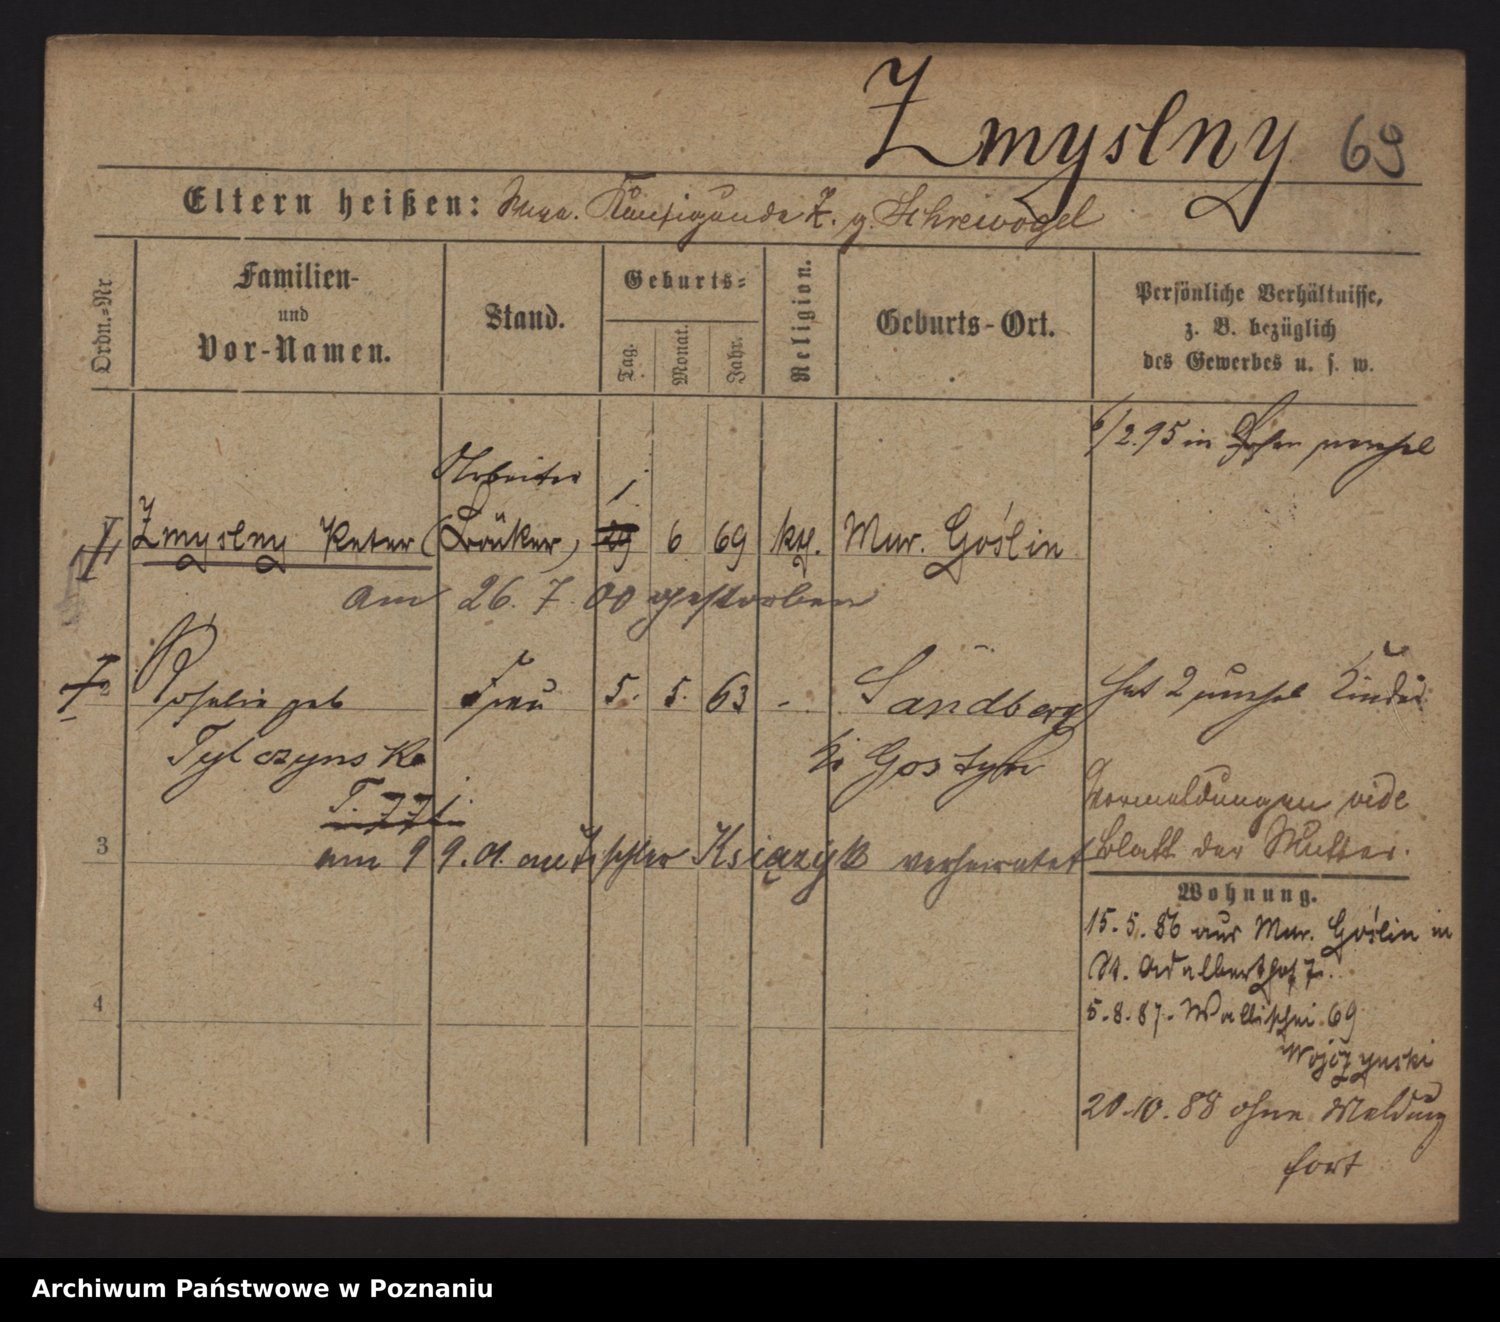 Zmyslny 69
Eltern heißen: Kunigunde Z. g. Schrewogel
Ordn.=Nr
Familien-
und
Vor-Namen.
Stand.
Geburts=
Tag.
Monat.
Jahr.
Religion.
Geburts-Ort.
Persönliche Verhältnisse,
z. B. bezüglich
des Gewerbes u. s. w.
6/2.95 in
Arbeiter
1
Zmyslny Peter (Böttker) 29 6 69 kth. Mur. Goślin
am 26. 7. 00 gestorben
2 Rosalie geb Frau 5. 5. 63 - Sandberg hat 2 unehel Kinder
Tylczynska Kr Gostyn
T. 771.
Vormeldungen vide
3 am 9 9. 01. mit Tischler Książyk verheiratet Blatt der Mutter.
Wohnung.
15. 5. 86 aus Mur. Goślin in
St. Adalberthof 7.
4
5. 8. 87. Wallischei 69
20. 10. 88 ohne Meldung
fort
Archiwum Państwowe w Poznaniu